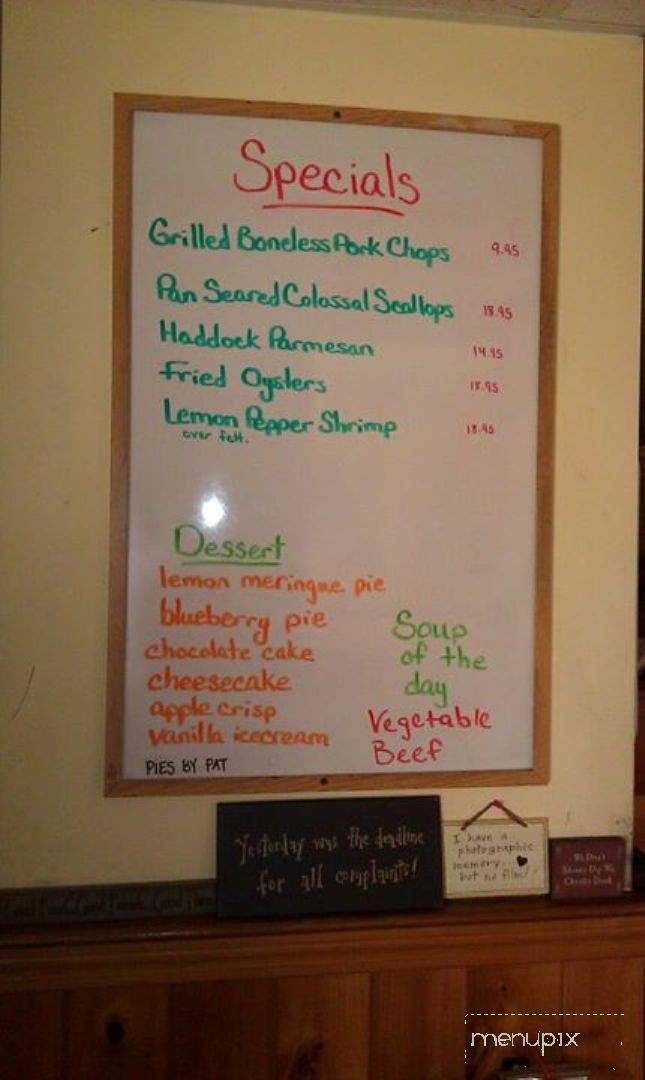 Specials
Grilled Boneless Pork Chops 9.95
Pan Seared Colossal Scallops 18.95
Haddock Parmesan 14.95
Fried Oysters 18.95
Lemon Pepper Shrimp 18.95
over fett.
Dessert
lemon meringue pie
blueberry pie
chocolate cake
cheesecake
apple crisp
vanilla icecream
PIES BY PAT
Soup
of the
day
Vegetable
Beef
Yesterday was the deadline
for all complaints!
I have a
photographic
memory...
but no film!
We Don't
menupix